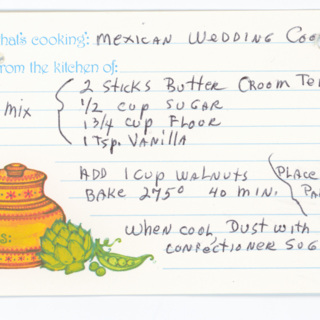 hat's cooking: MEXICAN WEDDING COO
rom the kitchen of:
MIX
2 STICKS BUTTER CROOM TE
1/2 CUP SUGAR
1 3/4 CUP FLOOR
1 TSP. VANILLA
ADD 1 CUP WALNUTS
BAKE 275° 40 MIN.
PLACE
PA
WHEN COOL DUST WITH
CONFECTIONER SUG
s: